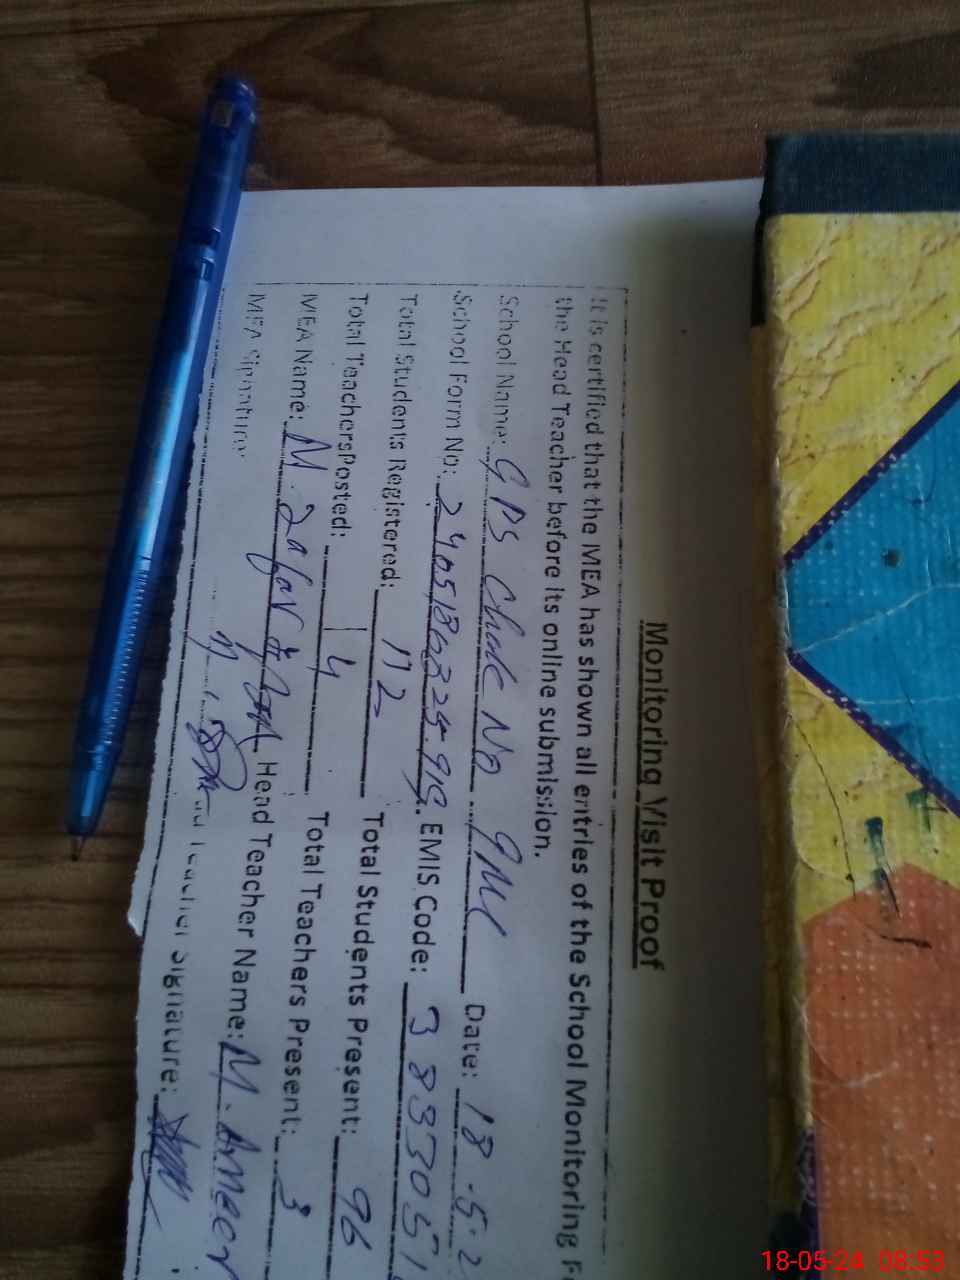 Monitoring Visit Proof
It is certified that the MEA has shown all entries of the School Monitoring
the Head Teacher before its online submission.
School Name: GPS Chak No 9ML Date: 18.5.2
School Form No: EMIS Code: 3833051
Total Students Registered: 112 Total Students Present: 96
Total Teachers Posted: 4 Total Teachers Present: 3
MEA Name: M. Zafar Head Teacher Name: M. Ameer
MEA Signature: Teacher Signature:
18-05-24 08:53